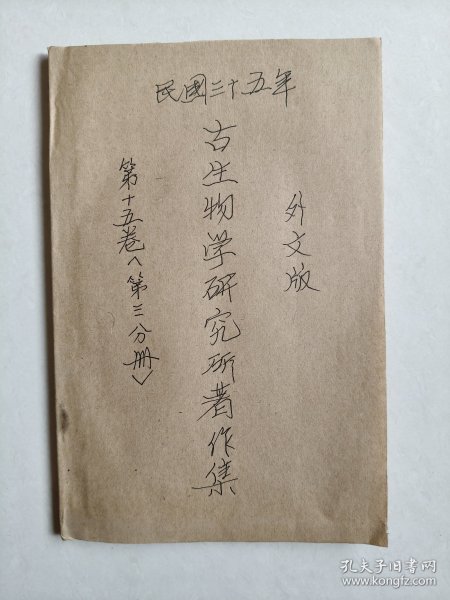 民國三十五年
外文版
古生物学研究所著作集
第十五卷〈第三分册〉
孔夫子旧书网
www.kongfz.com